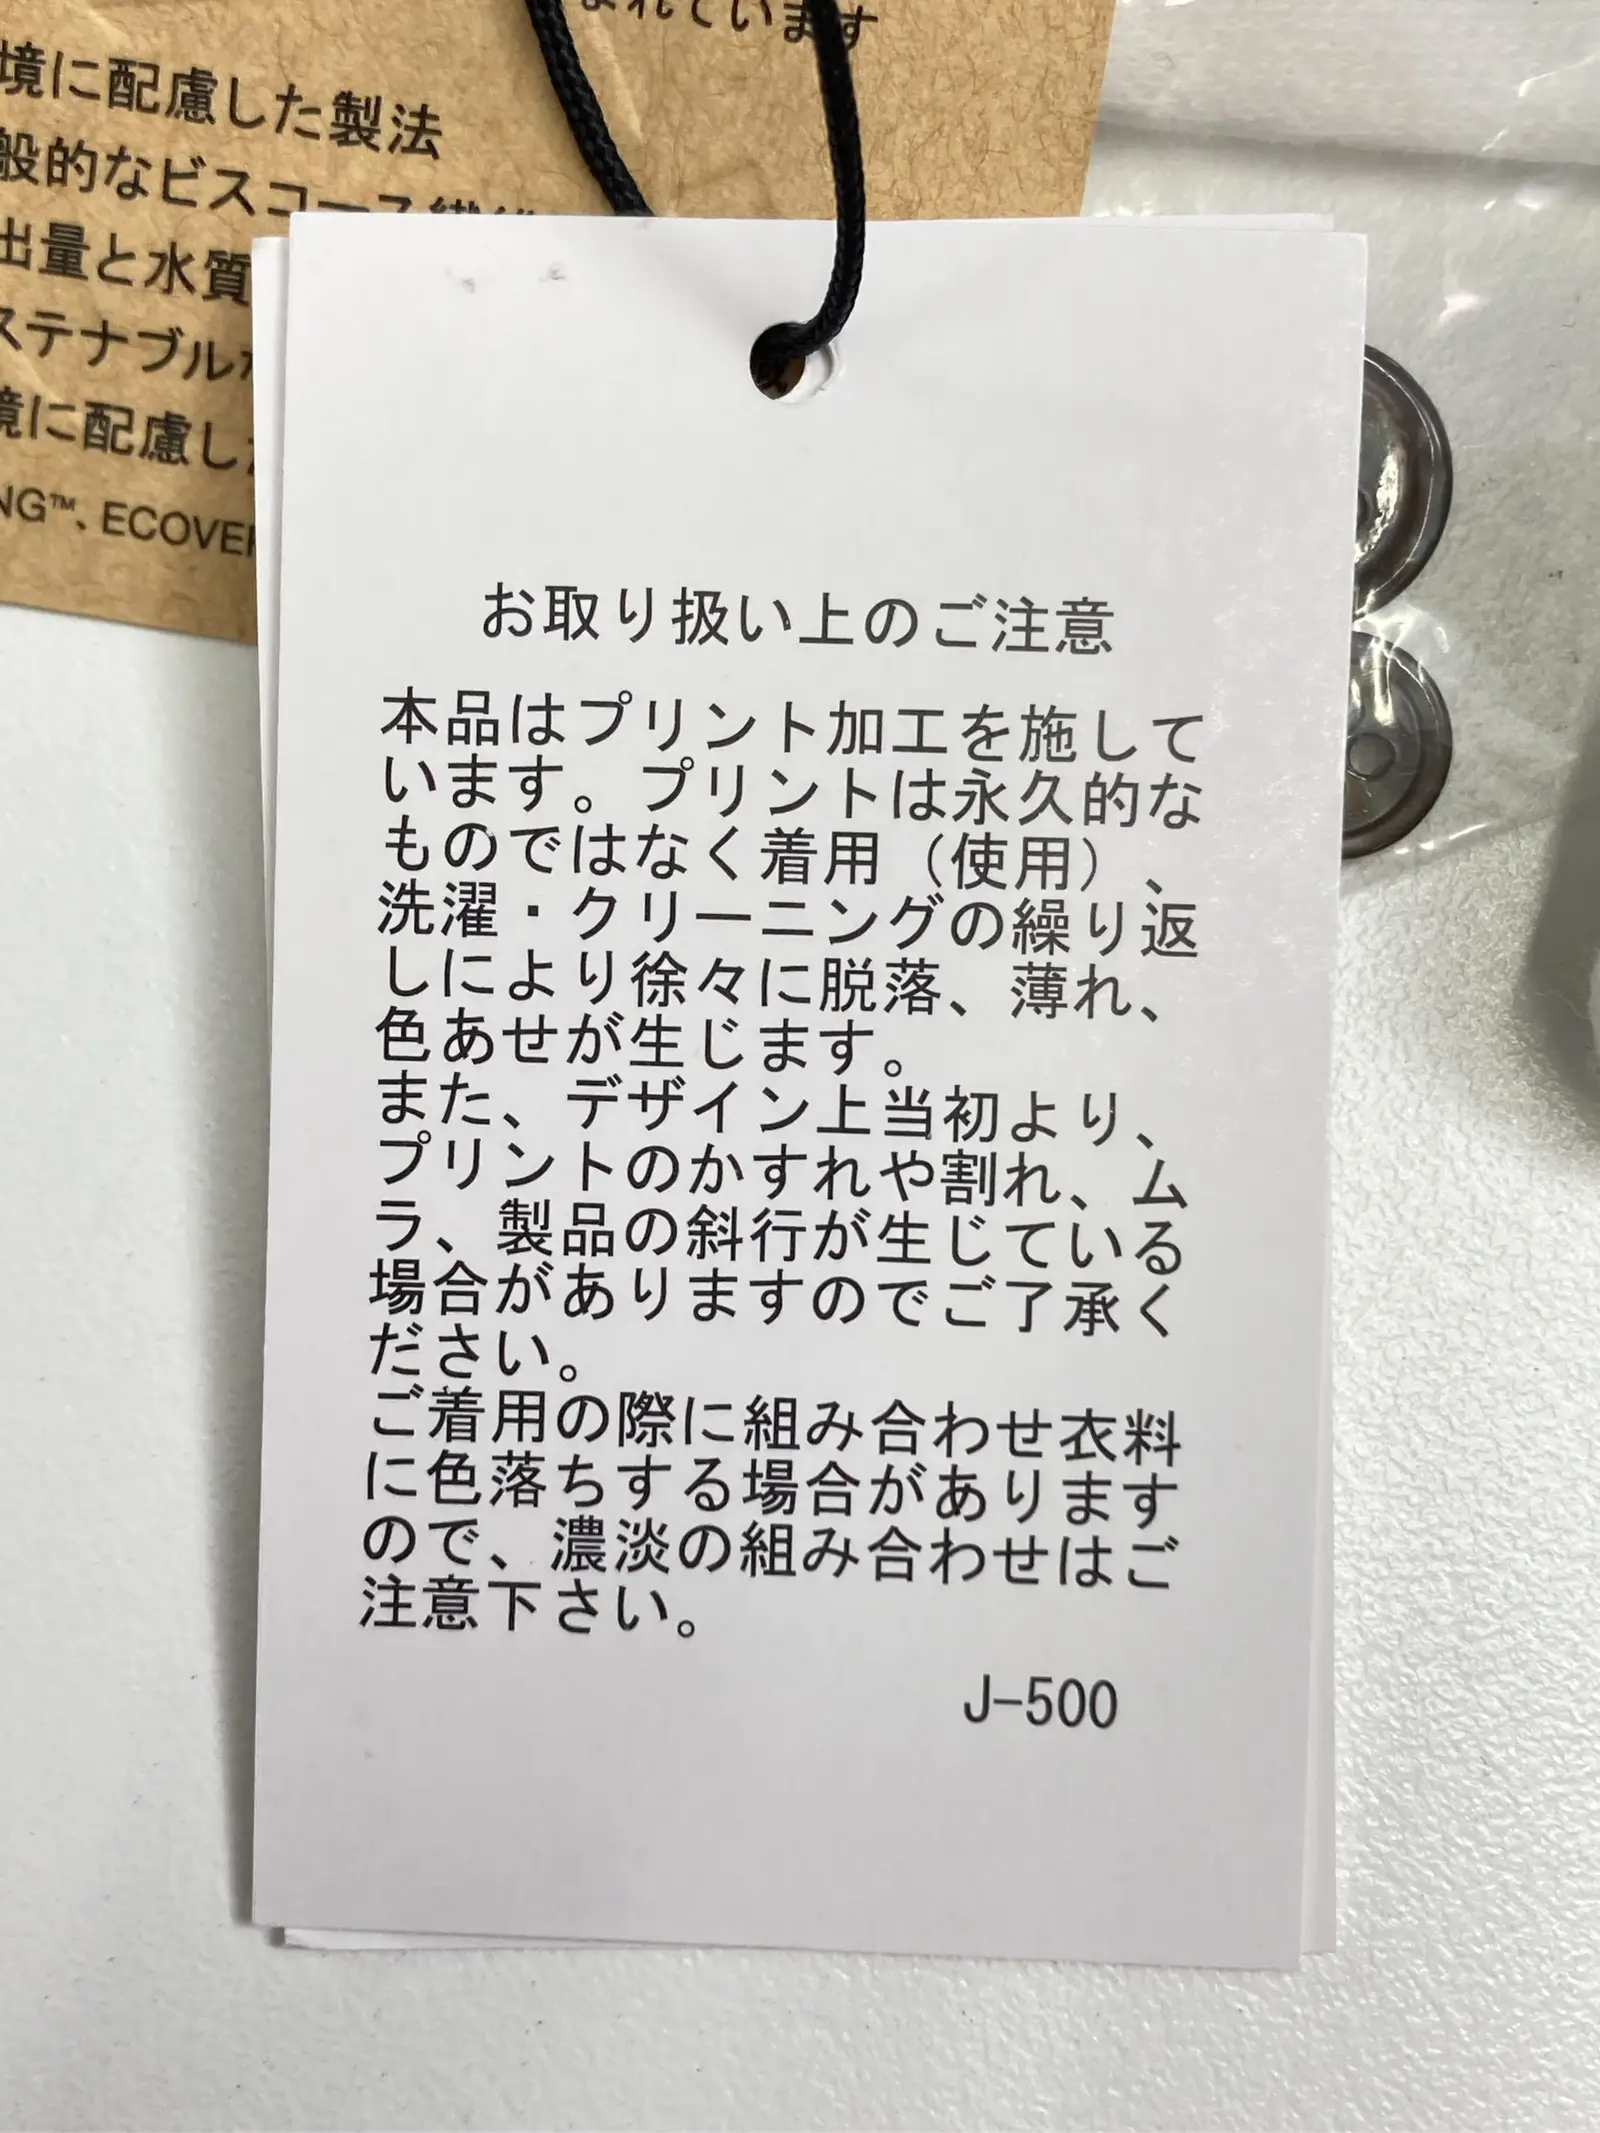 まれています
境に配慮した製法
般的なビスコース繊維
出量と水質
ステナブル
境に配慮し
NG™、ECOVER
お取り扱い上のご注意
本品はプリント加工を施して
います。プリントは永久的な
ものではなく着用（使用）、
洗濯・クリーニングの繰り返
しにより徐々に脱落、薄れ、
色あせが生じます。
また、デザイン上当初より、
プリントのかすれや割れ、ム
ラ、製品の斜行が生じている
場合がありますのでご了承く
ださい。
ご着用の際に組み合わせ衣料
に色落ちする場合があります
ので、濃淡の組み合わせはご
注意下さい。
J-500